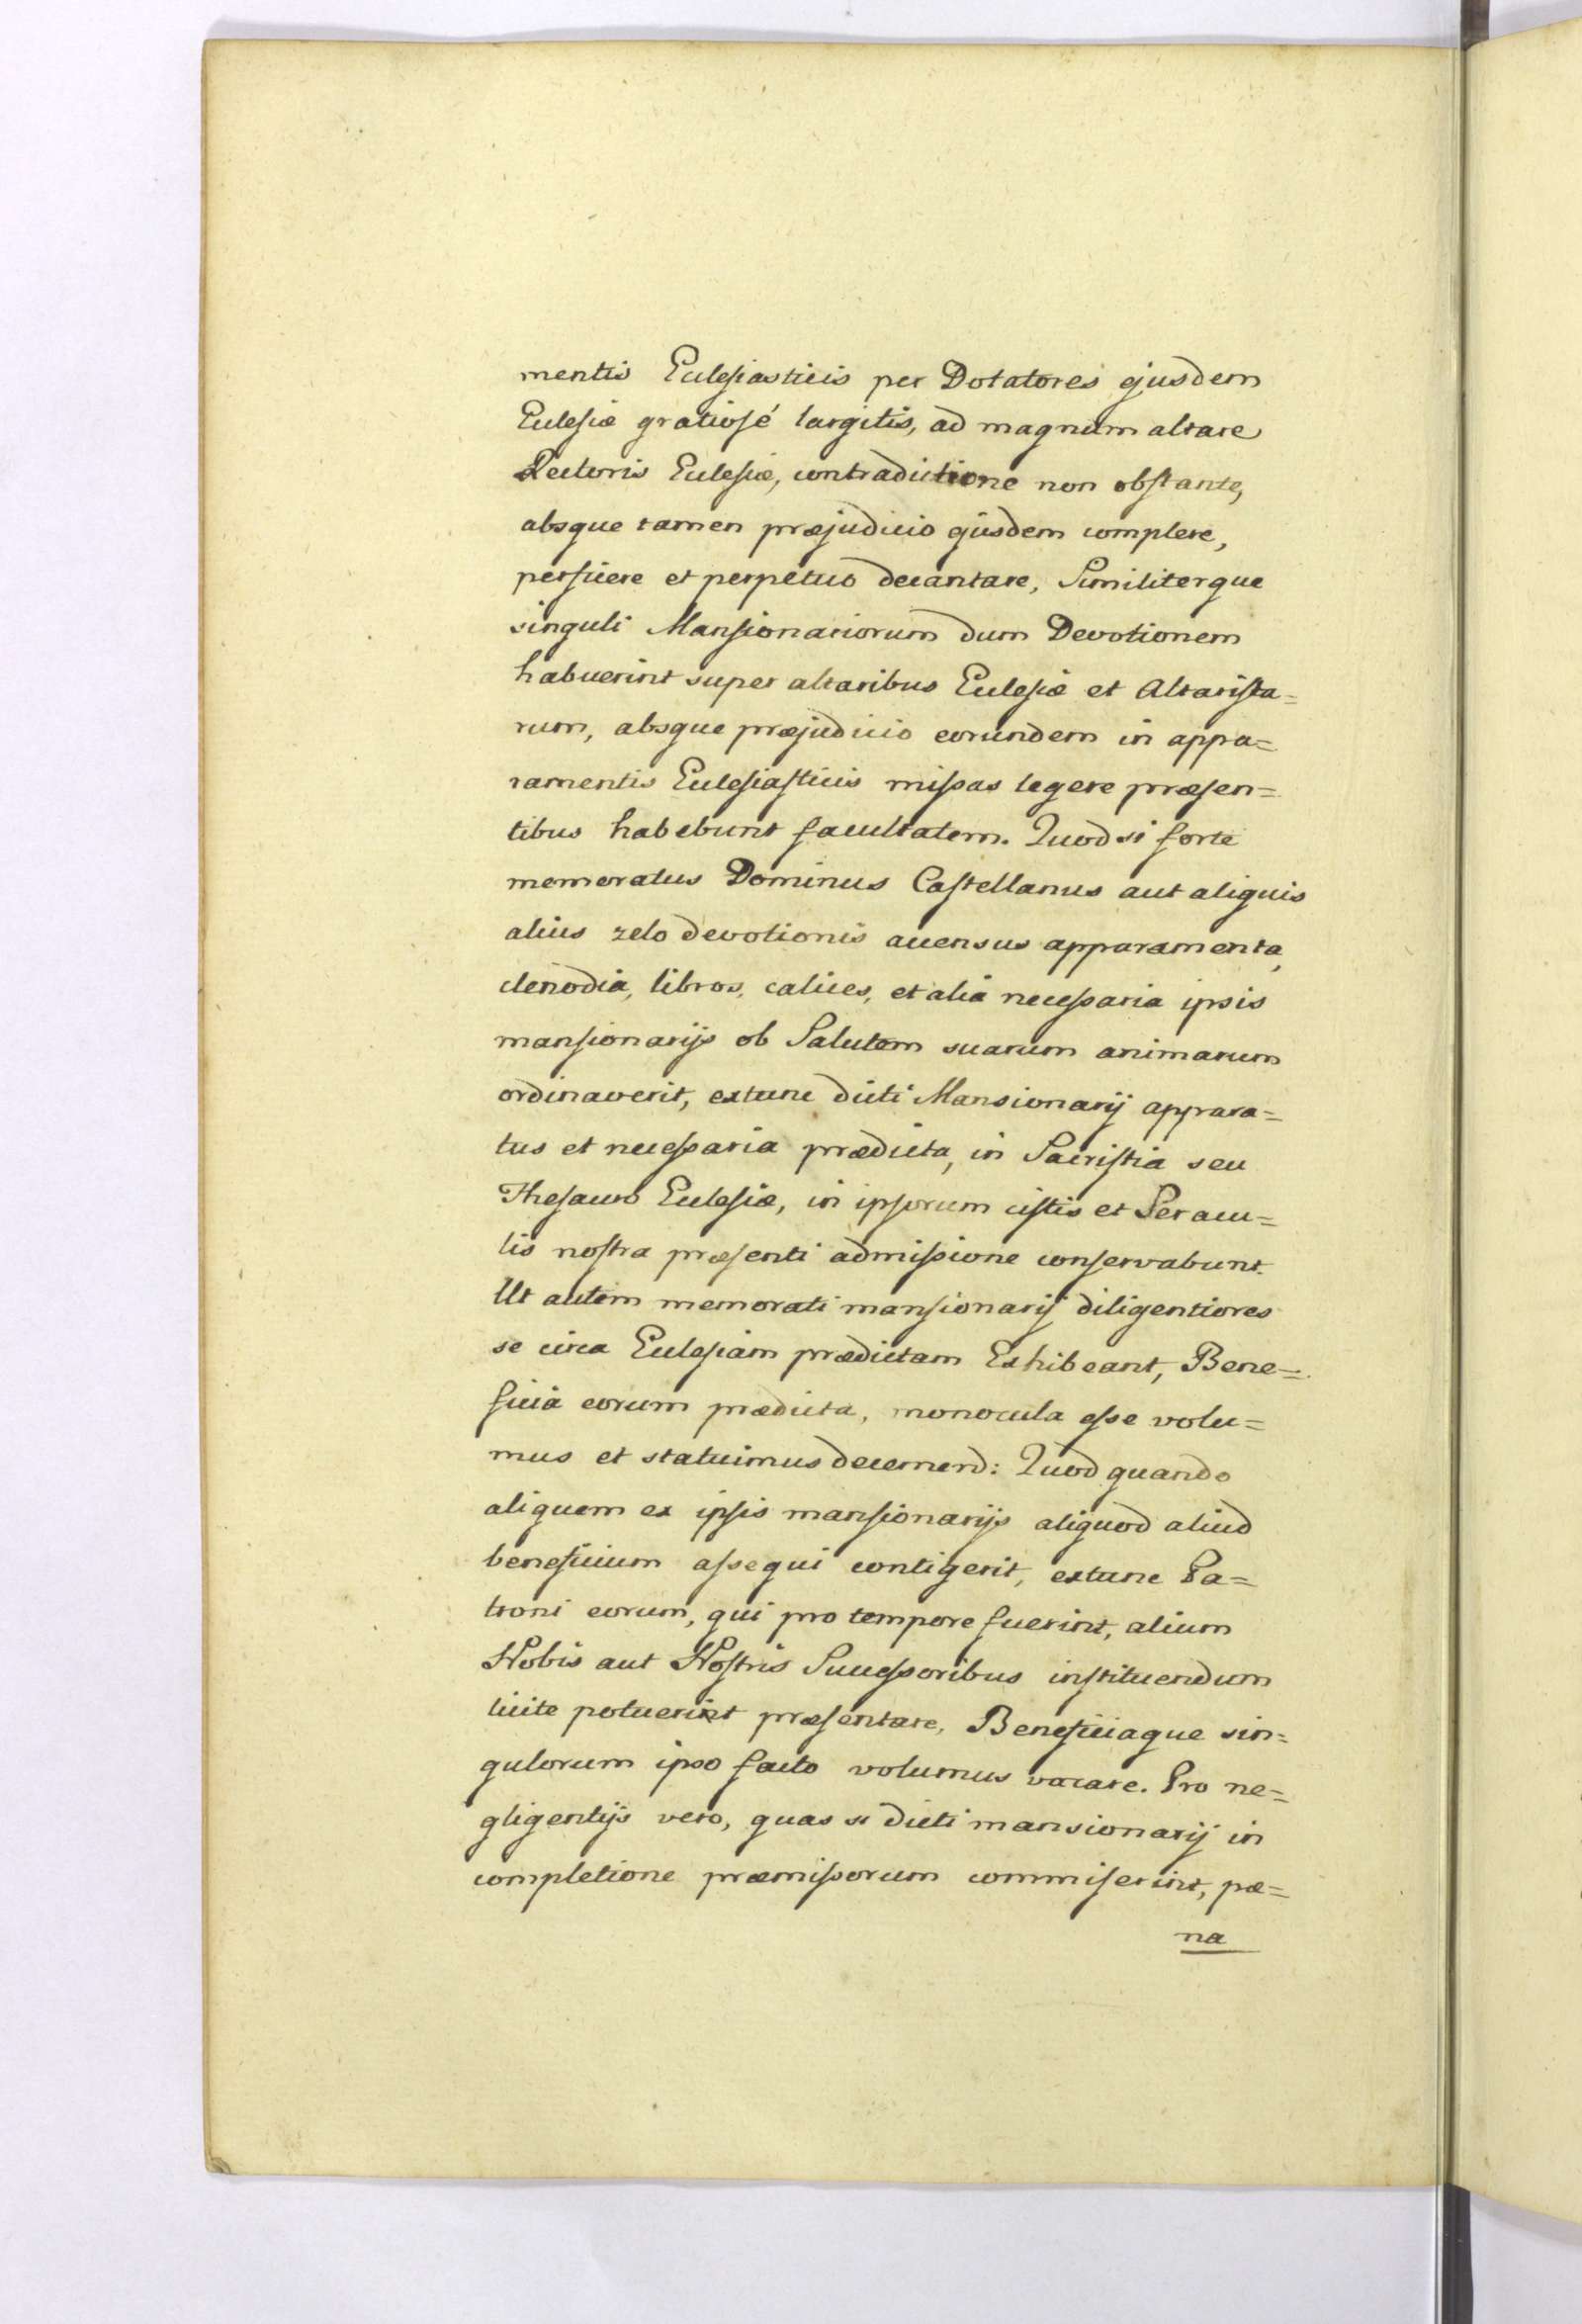 mentis Ecclesiasticis per Dotatores ejusdem
Ecclesiæ gratiosé largitis, ad magnum altare
Rectoris Ecclesiæ, contradictione non obstante,
absque tamen præjudicio ejusdem complere,
perficere et perpetuo decantare, Similiterque
singuli Mansionariorum dum Devotionem
habuerint super altaribus Ecclesiæ et Altarista=
rum, absque præjudicio eorundem in appa=
ramentis Ecclesiasticis missas legere præsen=
tibus habebunt facultatem. Quod si forte
memoratus Dominus Castellanus aut aliquis
alius zelo devotionis accensus apparamenta,
clenodia, libros, calices, et alia necessaria ipsis
mansionarijs ob Salutem suarum animarum
ordinaverit, extunc dicti Mansionarij appara=
tus et necessaria prædicta, in Sacristia seu
Thesauro Ecclesiæ, in ipsorum cistis et Seracu=
lis nostra præsenti admissione conservabunt.
Ut autem memorati mansionarij diligentiores
se circa Ecclesiam prædictam Exhibeant, Bene=
ficia eorum prædicta, monocula esse volu=
mus et statuimus decernend: Quod quando
aliquem ex ipsis mansionarijs aliquod aliud
beneficium assequi contigerit, extunc Pa=
troni eorum, qui pro tempore fuerint, alium
Nobis aut Nostris Successoribus instituendum
licite potuerint præsentare, Beneficiaque sin=
gulorum ipso facto volumus vacare. Pro ne=
gligentijs vero, quas si dicti mansionarij in
completione præmissorum commiserint, pæ=
na